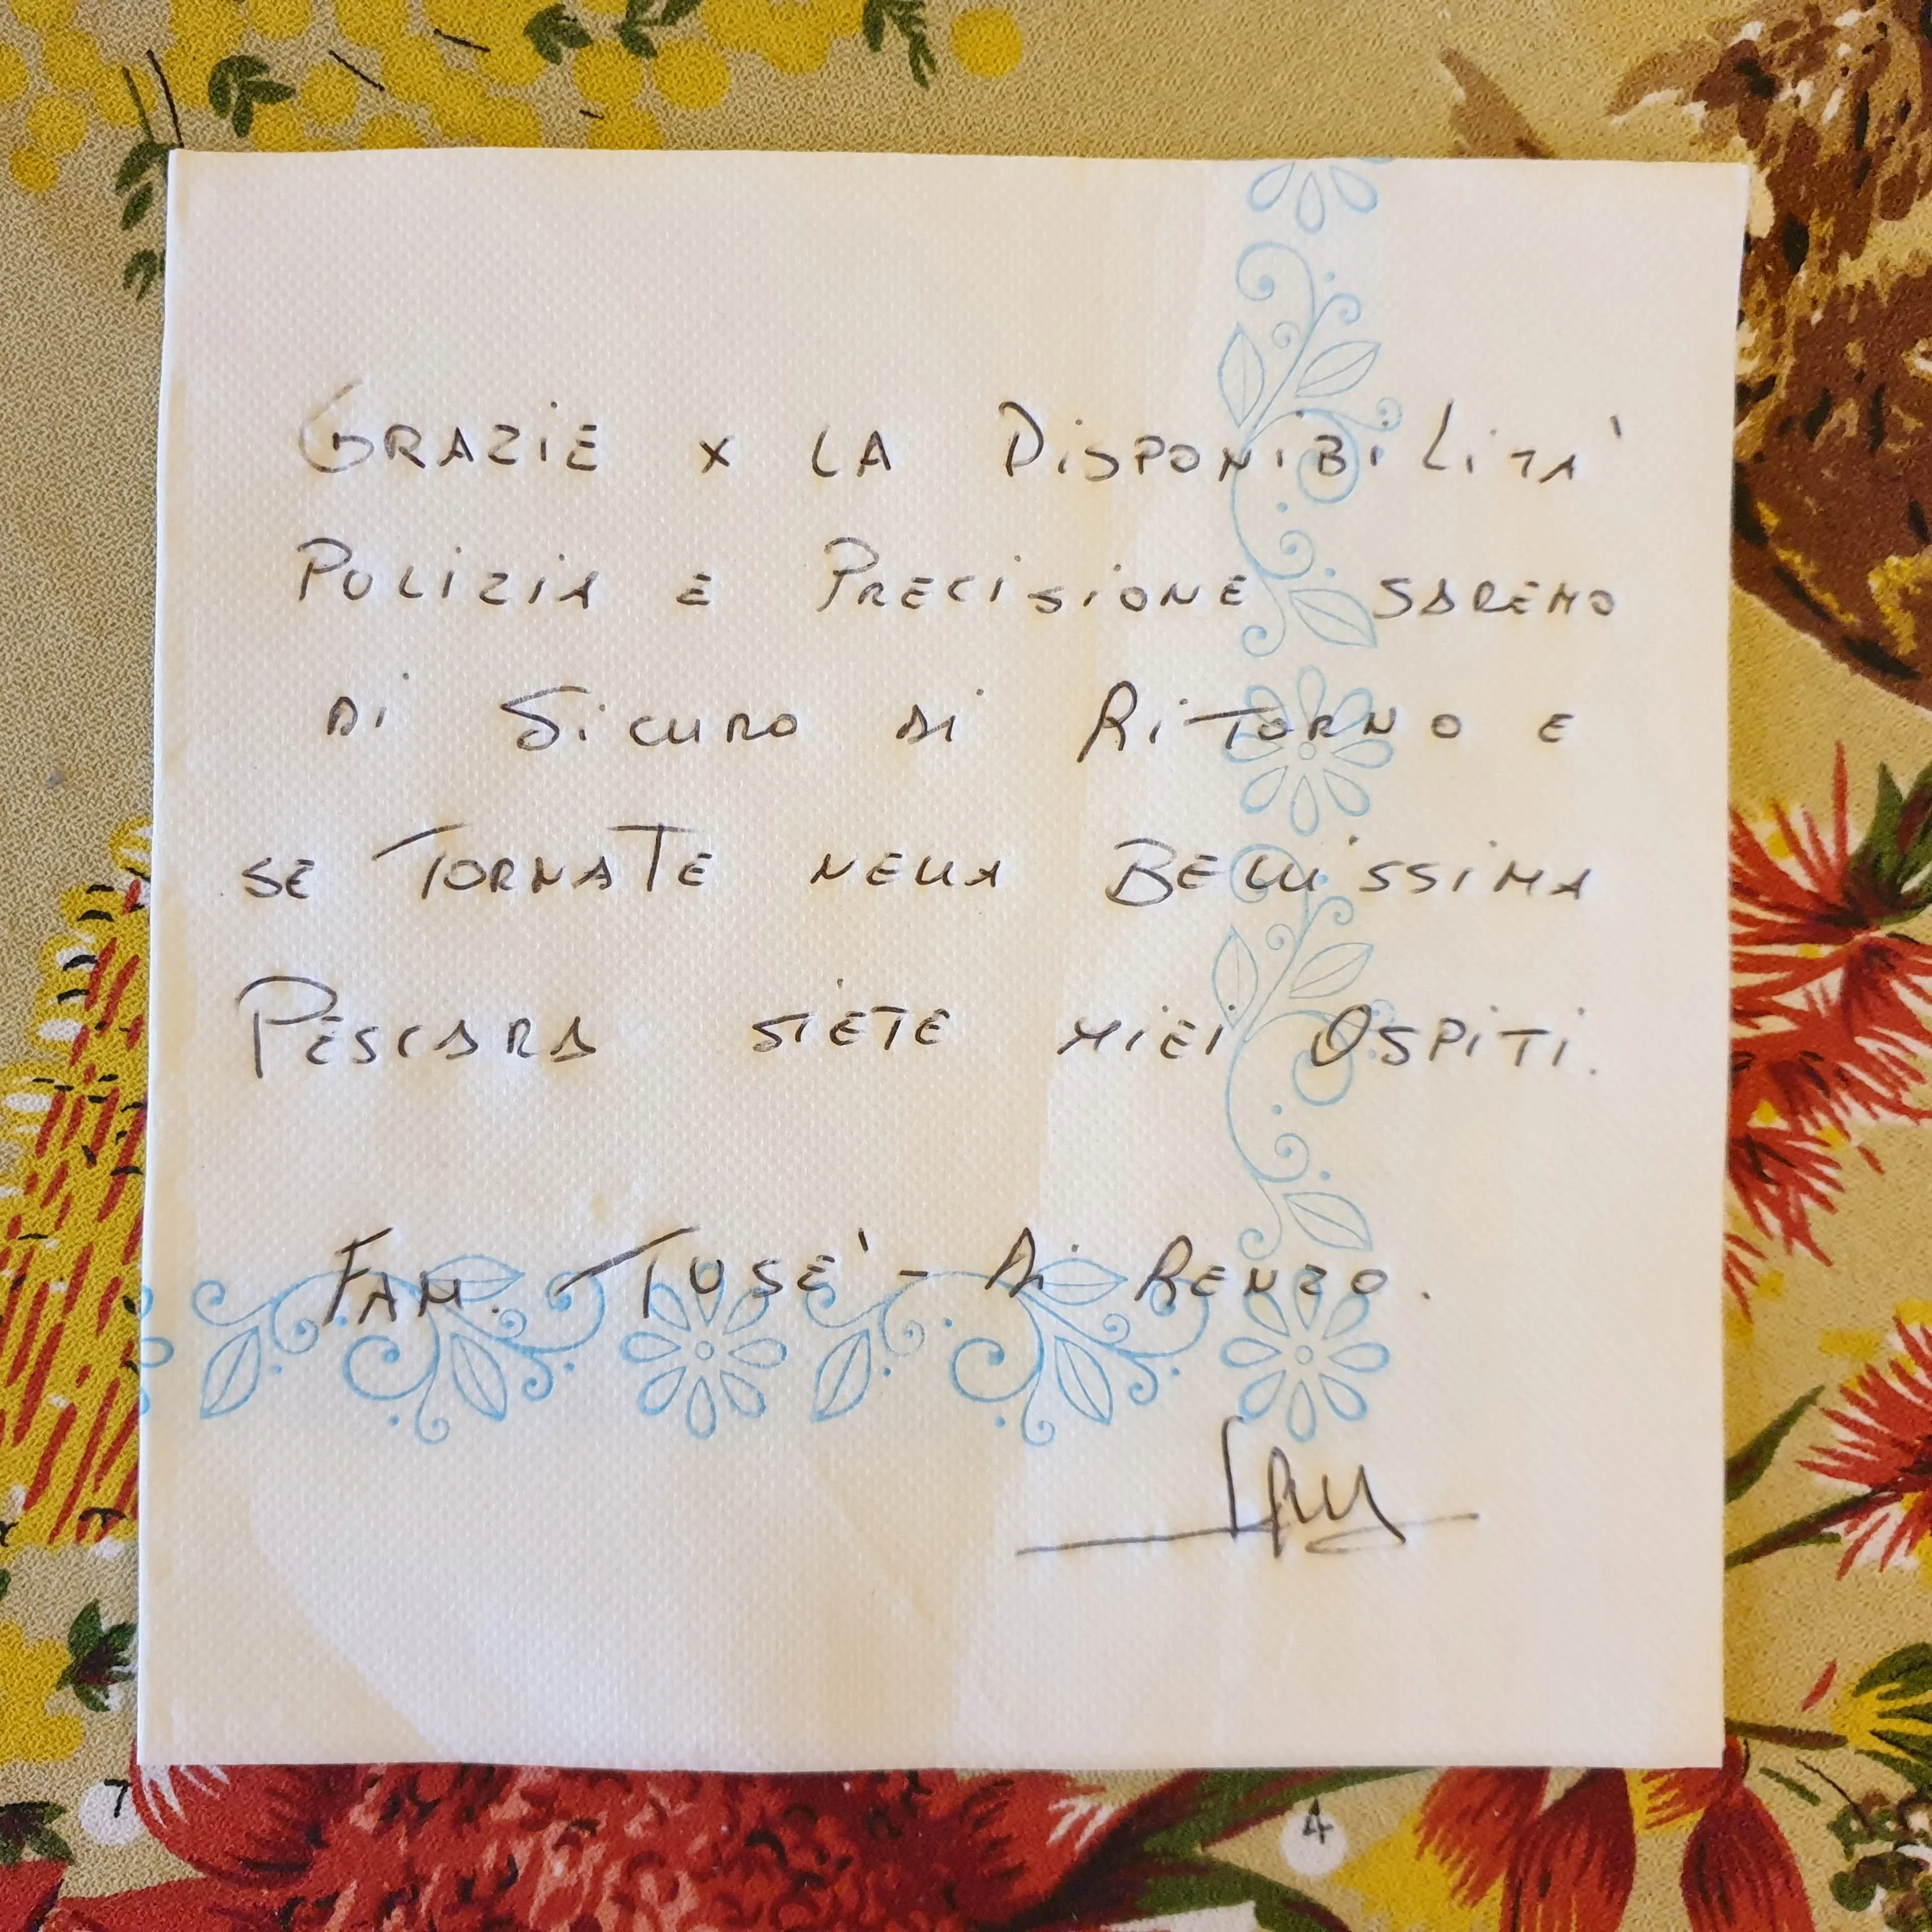 GRAZIE x LA DiSPONiBiLiTA'
PULIZIA E PRECISIONE SAREMO
Di SiCURO Di RiTORNO E
SE TORNATE NELLA BELLISSIMA
PESCARA SIETE MIEI OSPITI.
FAM. TUSE' - Di RENZO.
7
4